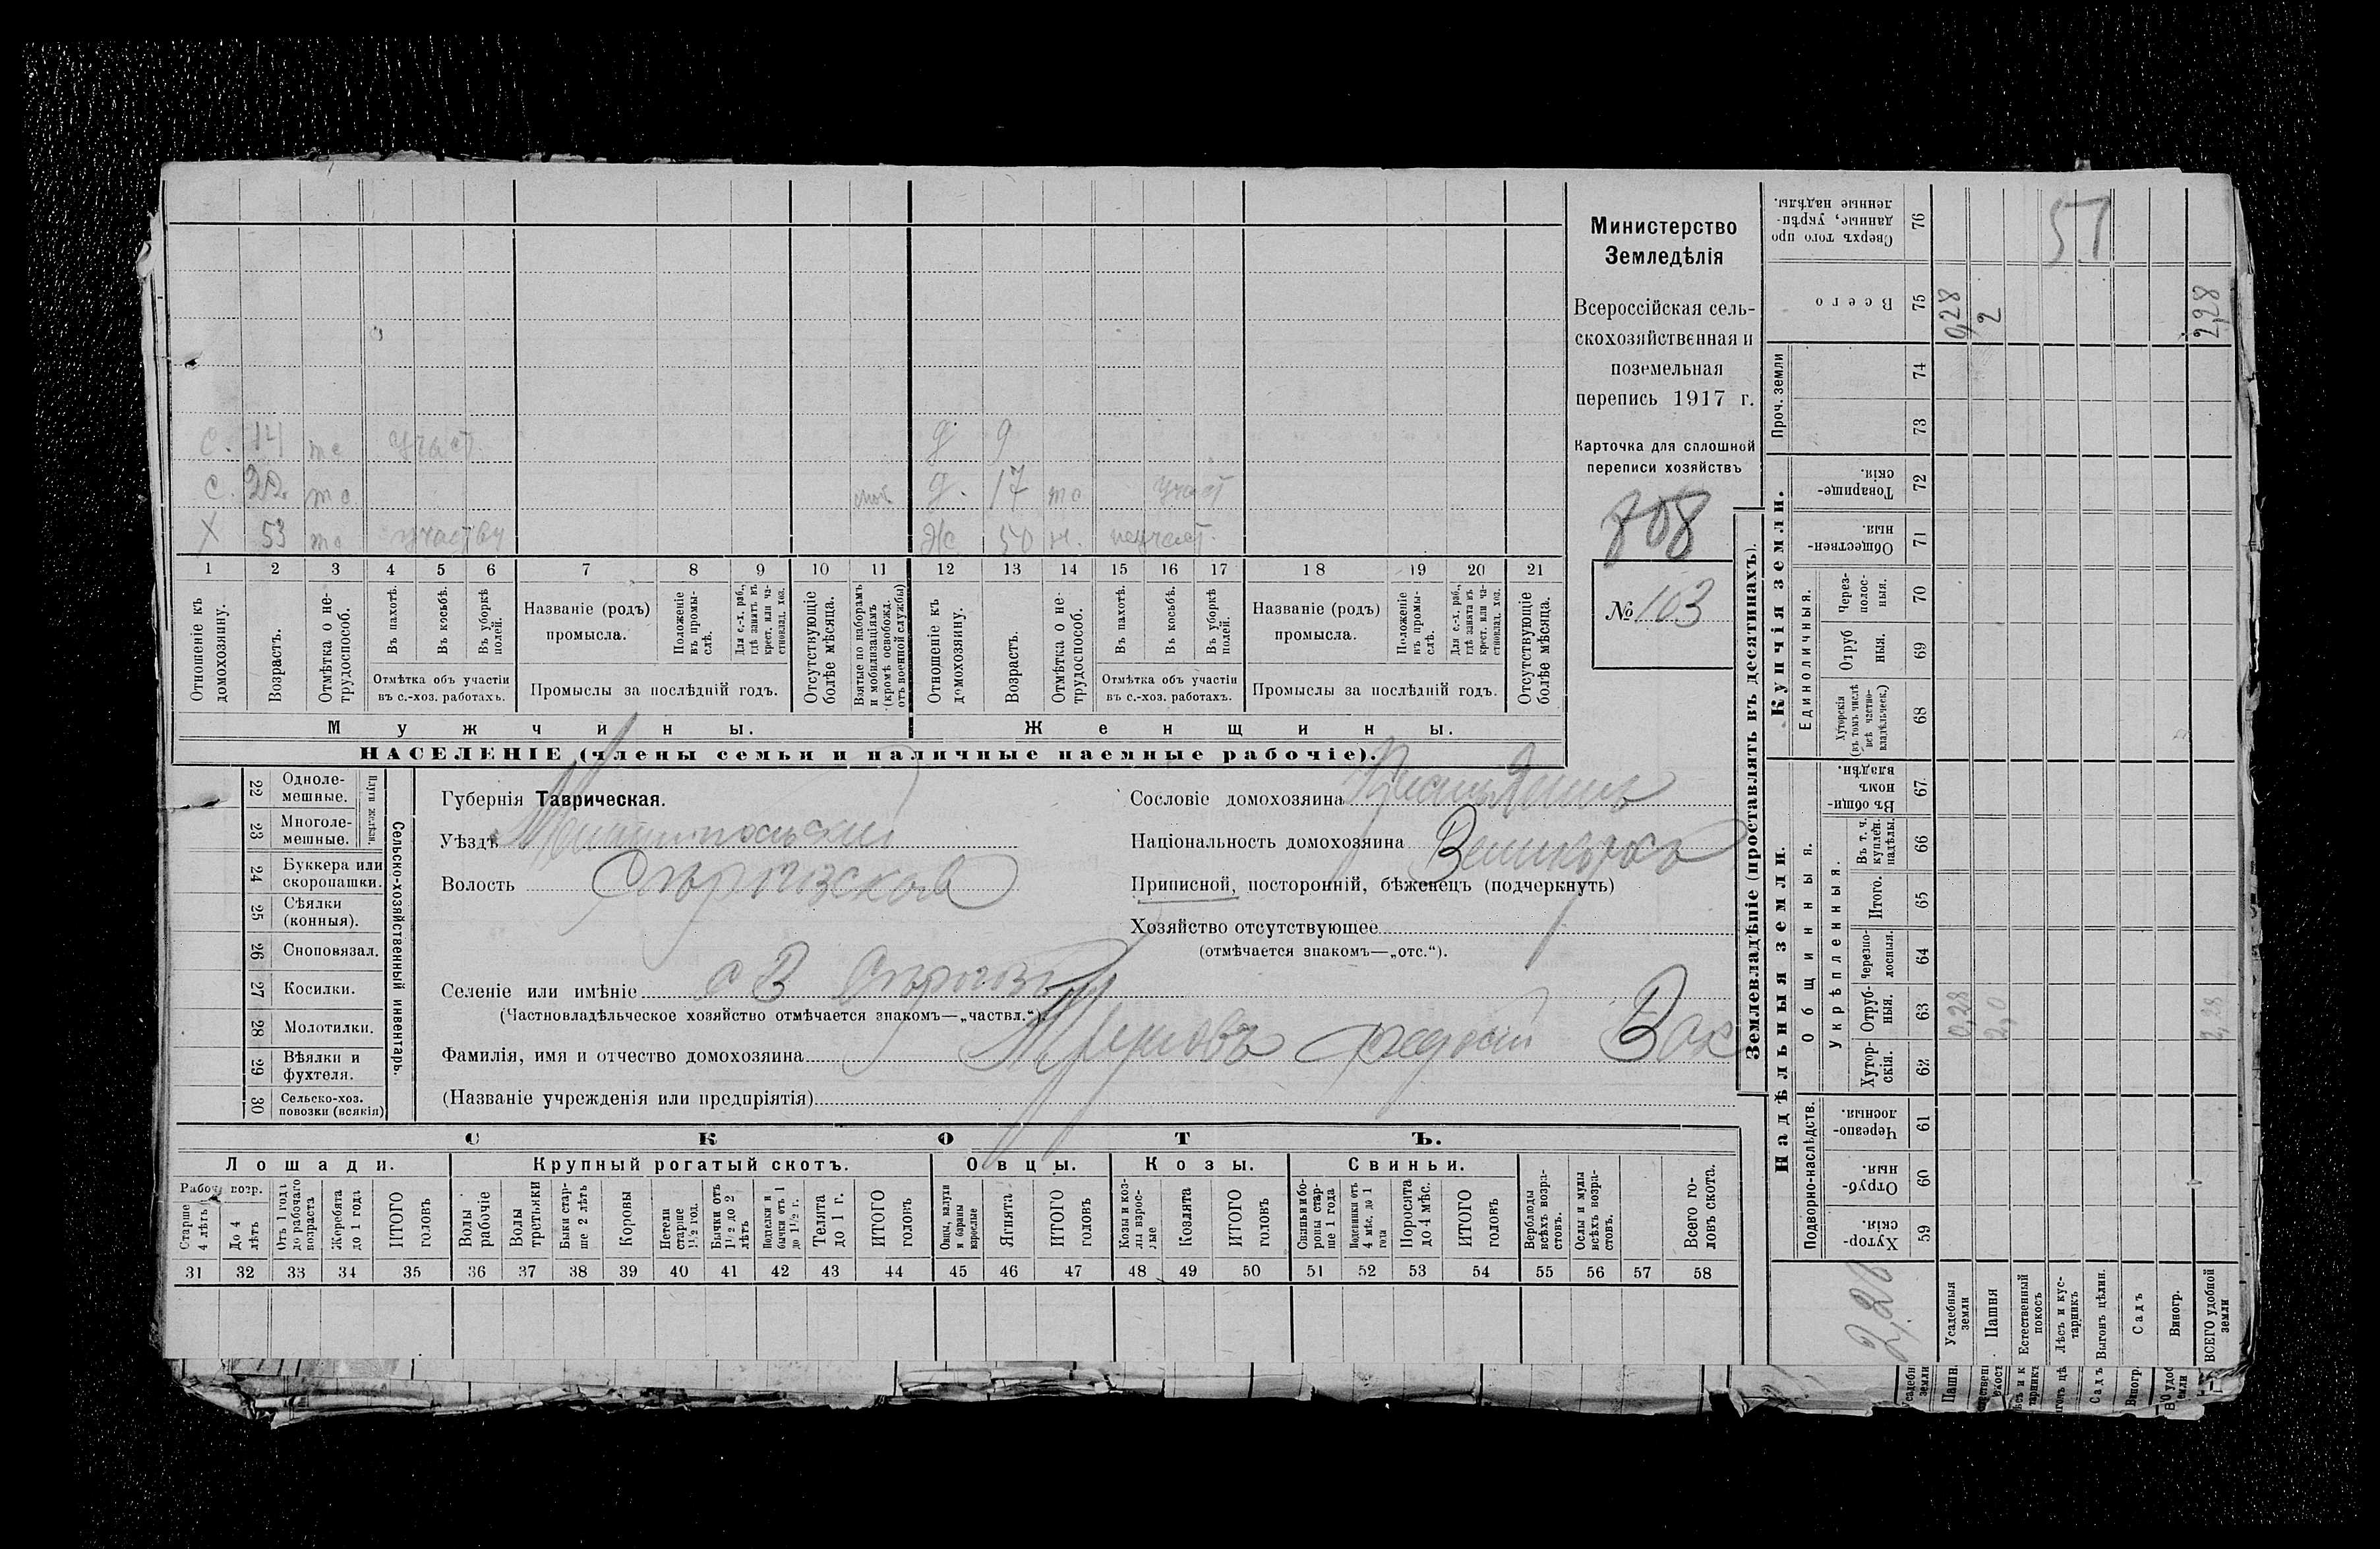 С. 14 тс участ. Д 9
С. 22 тс Д. 17 тс участ
Х 53 тс участву Ж 50 н. неучаст.
1 2 3 4 5 6 7 8 9 10 11 12 13 14 15 16 17 18 19 20 21
Отношеніе къ домохозяину.
Возрастъ.
Отмѣтка о не-трудоспособ.
Въ пахотѣ.
Въ косьбѣ.
Въ уборкѣ полей.
Отмѣтка объ участіи
въ с.-хоз. работахъ.
Названіе (родъ)
промысла.
Положеніе въ промы-слѣ.
Для с.-х. раб., гдѣ занятъ въ крест. или ча-стновлад. хоз.
Промыслы за послѣдній годъ.
Отсутствующіе болѣе мѣсяца.
Взятые по наборамъ и мобилизаціямъ (кромѣ освобожд. отъ военной службы)
Отношеніе къ домохозяину.
Возрастъ.
Отмѣтка о не-трудоспособ.
Въ пахотѣ.
Въ косьбѣ.
Въ уборкѣ полей.
Отмѣтка объ участіи
въ с.-хоз. работахъ.
Названіе (родъ)
промысла.
Положеніе въ промы-слѣ.
Для с.-х. раб., гдѣ занята въ крест. или ча-стновлад. хоз.
Промыслы за послѣдній годъ.
Отсутствующіе болѣе мѣсяца.
Мужчины. Женщины.
НАСЕЛЕНІЕ (члены семьи и наличные наемные рабочіе).
Министерство
Земледѣлія
Всероссійская сель-
скохозяйственная и
поземельная
перепись 1917 г.
Карточка для сплошной
переписи хозяйствъ
708
№ 103
22 Одноле-мешные.
23 Многоле-мешные.
Плуги желѣзн.
24 Буккера или скоропашки.
25 Сѣялки (конныя).
26 Сноповязал.
27 Косилки.
28 Молотилки.
29 Вѣялки и фухтеля.
30 Сельско-хоз. повозки (всякія)
Сельско-хозяйственный инвентарь.
Губернія Таврическая.
Уѣздъ Мелитопольский
Волость
Селеніе или имѣніе с В
(Частновладѣльческое хозяйство отмѣчается знакомъ—„частвл.“).
Фамилія, имя и отчество домохозяина Федосий Вас
(Названіе учрежденія или предпріятія)
Сословіе домохозяина Крестьянинъ
Національность домохозяина Великоросъ
Приписной, посторонній, бѣженецъ (подчеркнуть)
Хозяйство отсутствующее
(отмѣчается знакомъ—„отс.“).
СКОТЪ.
Лошади. Крупный рогатый скотъ. Овцы. Козы. Свиньи.
Рабоч. возр.
Старше 4 лѣтъ
До 4 лѣтъ
Отъ 1 года до рабочаго возраста
Жеребята до 1 года
ИТОГО головъ
Волы рабочіе
Волы третьяки
Быки стар-ше 2 лѣтъ
Коровы
Нетели старше 1½ год.
Бычки отъ 1½ до 2 лѣтъ
Подтелки и бычки отъ 1 до 1½ г.
Телята до 1 г.
ИТОГО головъ
Овцы, валухи и бараны взрослые
Ягнята
ИТОГО головъ
Козы и коз-лы взрос-лые
Козлята
ИТОГО головъ
Свиньи и бо-ровы стар-ше 1 года
Подсвинки отъ 4 мѣс. до 1 года
Поросята до 4 мѣс.
ИТОГО головъ
Верблюды всѣхъ возра-стовъ.
Ослы и мулы всѣхъ возра-стовъ.
Всего го-ловъ скота.
31 32 33 34 35 36 37 38 39 40 41 42 43 44 45 46 47 48 49 50 51 52 53 54 55 56 57 58
Землевладѣніе (проставлять въ десятинахъ).
Надѣльныя земли. Купчія земли. Проч. земли
Подворно-наслѣдств.
Общинныя.
Укрѣпленныя.
Единоличныя.
Хутор-скія. 59
Отруб-ныя. 60
Черезпо-лосныя. 61
Хутор-скія. 62
Отруб-ныя. 63
Черезпо-лосныя. 64
Итого. 65
Въ т. ч. куплен. надѣлы. 66
Въ общи-номъ владѣн. 67
Хуторскія (въ томъ числѣ всѣ частно-владѣльческ.) 68
Отруб ныя. 69
Через-полос-ныя. 70
Обществен-ныя. 71
Товарище-скія. 72
73
74
Всего 75
Сверхъ того про данные, укрѣп-ленные надѣлы. 76
2,28
Усадебныя земли 0,28 0,28
Пашня 2,0 2
Естественный покосъ
Лѣсъ и кус-тарникъ
Выгонъ цѣлин.
Садъ
Виногр.
ВСЕГО удобной земли 2,28 2,28
57